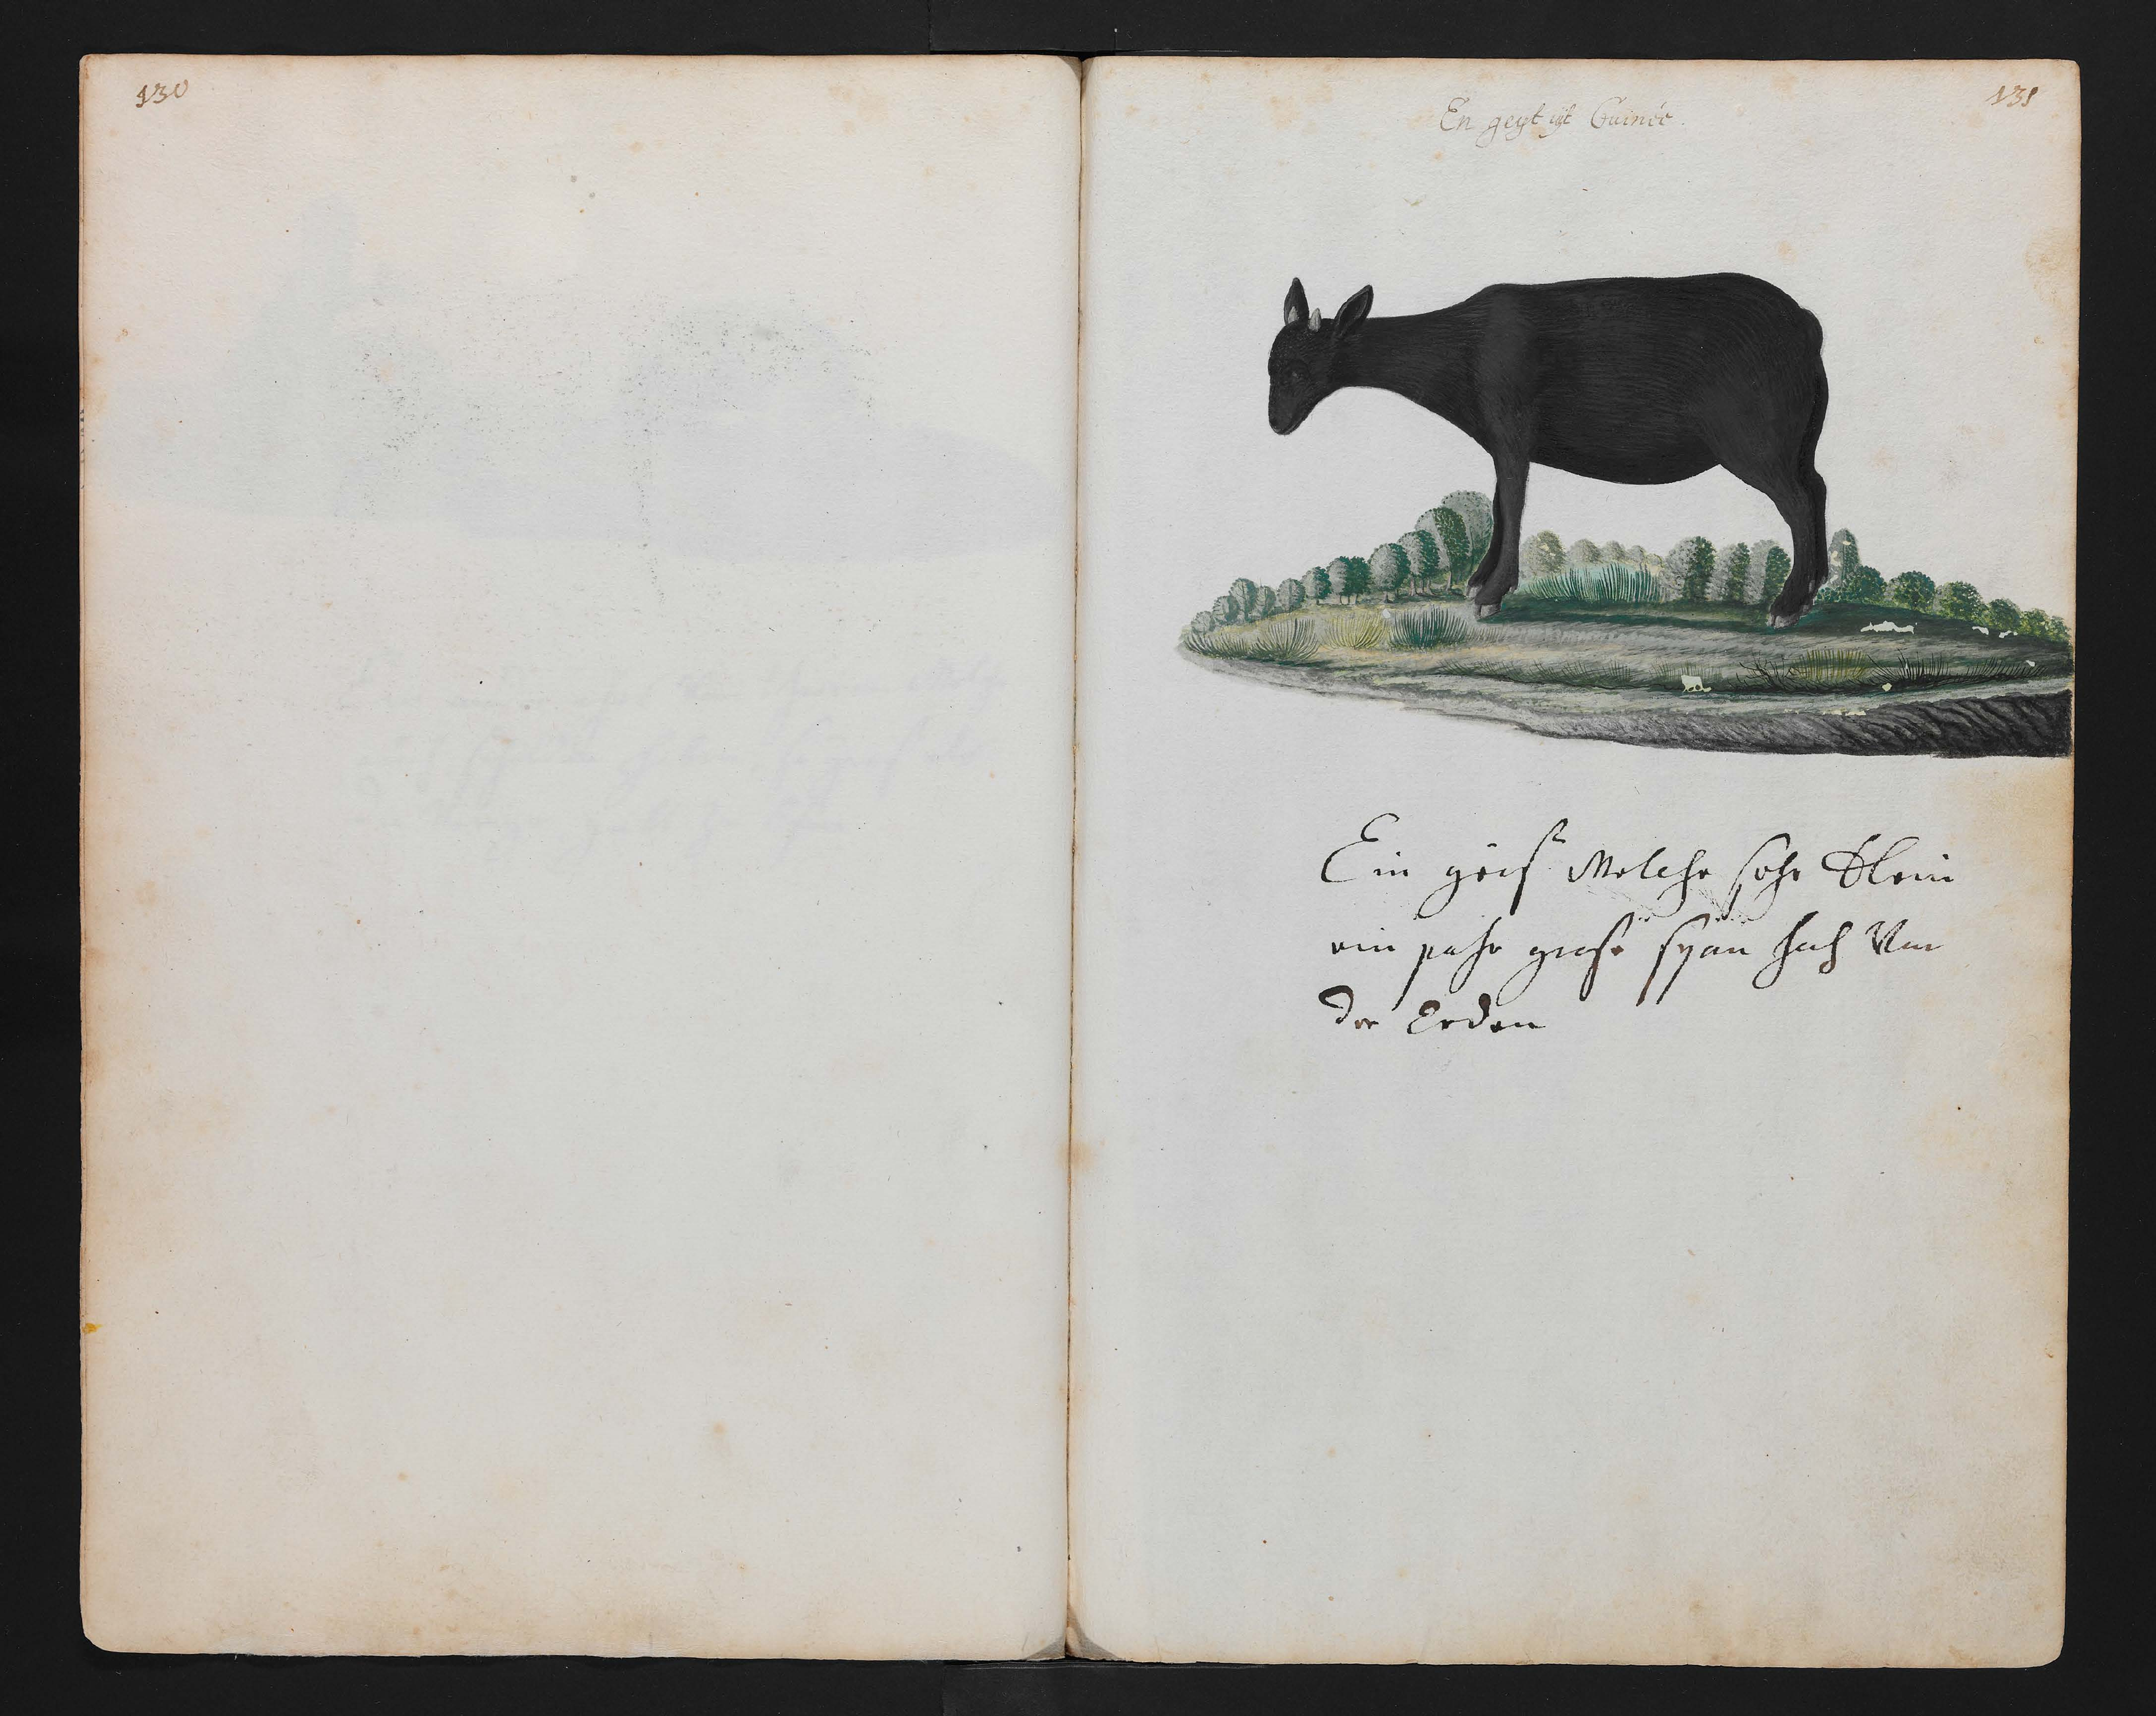 130
131
En geyt uÿt Guinée.
Ein geis Welche sehr Klein
ein pahr grose span hoch Von
der Erden